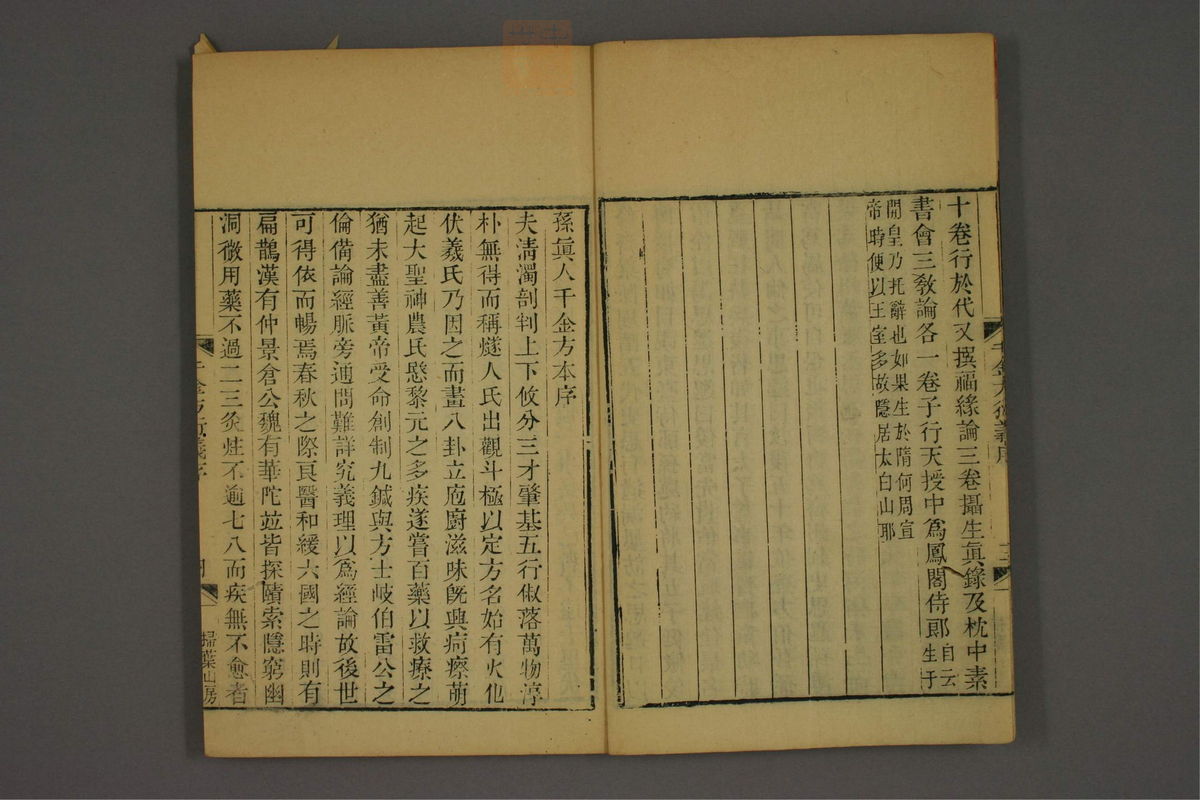 十卷行於代又撰福緣論三卷攝生眞錄及枕中素
書會三敎論各一卷子行天授中爲鳳閣侍郞自云生于
開皇乃托辭也如果生於隋何周宣
帝時便以王室多故隱居太白山耶
千金方衍義序
三
孫眞人千金方本序
夫淸濁剖判上下攸分三才肇基五行俶落萬物淳
朴無得而稱燧人氏出觀斗極以定方名始有火化
伏羲氏乃因之而畫八卦立庖廚滋味旣興痾瘵萌
起大聖神農氏愍黎元之多疾遂嘗百藥以救療之
猶未盡善黃帝受命創制九鍼與方士岐伯雷公之
倫備論經脈旁通問難詳究義理以爲經論故後世
可得依而暢焉春秋之際良醫和緩六國之時則有
扁鵲漢有仲景倉公魏有華陀竝皆探賾索隱窮幽
洞微用藥不過二三灸炷不逾七八而疾無不愈者
千金方衍義序
掃葉山房